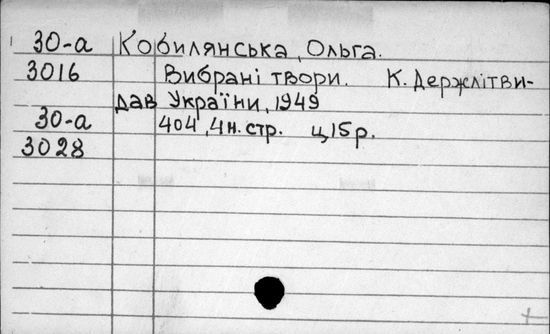 30-а Кобилянська, Ольга.
3016 Вибрані твори. К. Держлітви-
дав України, 1949
30-а 404, 4н. стр. ц 15 р.
3028